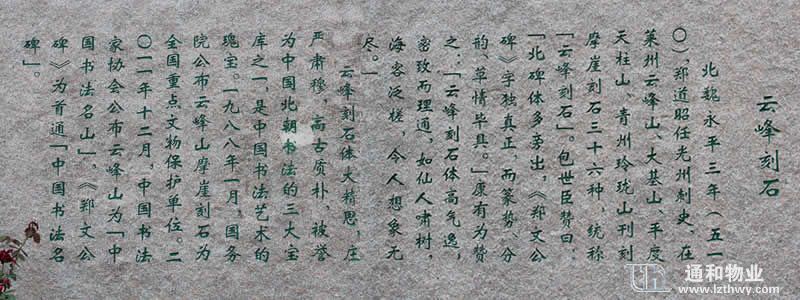 云峰刻石
北魏永平三年(五一
〇),郑道昭任光州刺史、在
莱州云峰山、大基山、平度
天柱山、青州玲珑山刊刻
摩崖刻石三十六种,统称
「云峰刻石」。包世臣赞曰:
「北碑体多旁出,《郑文公
碑》字独真正,而篆势、分
韵、草情毕具。」康有为赞
之:「云峰刻石体高气逸,
密致而理通,如仙人啸树,
海客泛槎,令人想象无
尽。」
云峰刻石体大精思,庄
严肃穆,高古质朴,被誉
为中国北朝书法的三大宝
库之一,是中国书法艺术的
瑰宝。一九八八年一月,国务
院公布云峰山摩崖刻石为
全国重点文物保护单位。二
〇一一年十二月,中国书法
家协会公布云峰山为「中
国书法名山」,《郑文公
碑》为首通「中国书法名
碑」。
通和物业
www.lzthwy.com